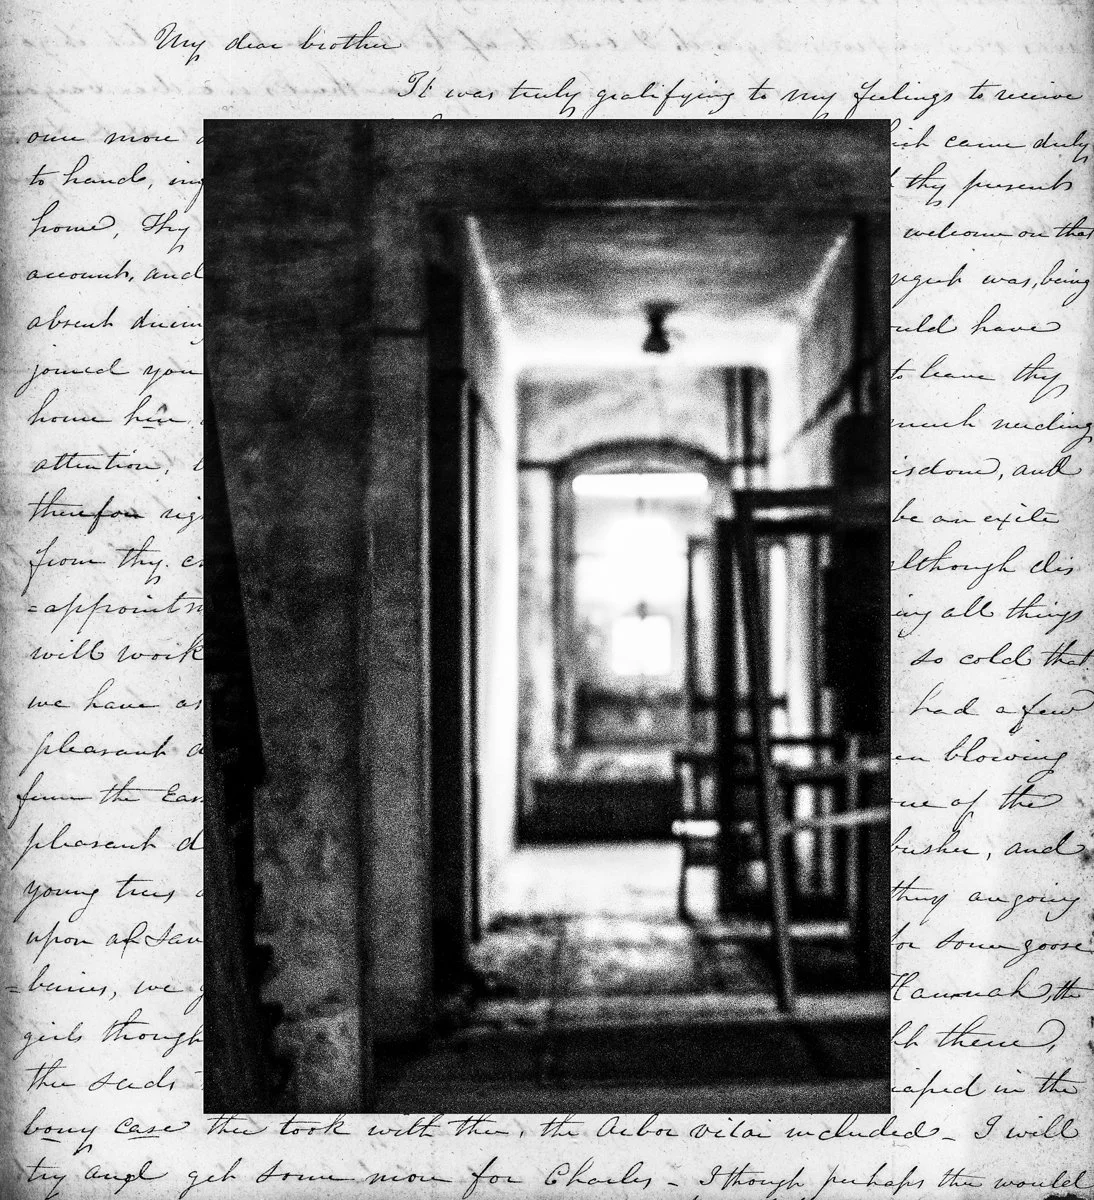 My dear brother
It was truly gratifying to my feelings to receive
once more came duly
to hand, thy present
home, Thy welcome on that
account, and was, being
absent have
joined you to leave thy
home much needing
attention, and
therefore be an exile
from thy although dis
=appointm all things
will work so cold that
we have had a few
pleasant blowing
from the Eas of the
pleasant d and
young trees they are going
upon for some goose
=berries, we Hannah, the
girls though there,
the seeds in the
bony case thee took with thee, the Arbor vitae included - I will
try and get some more for Charles - I though perhaps thee would